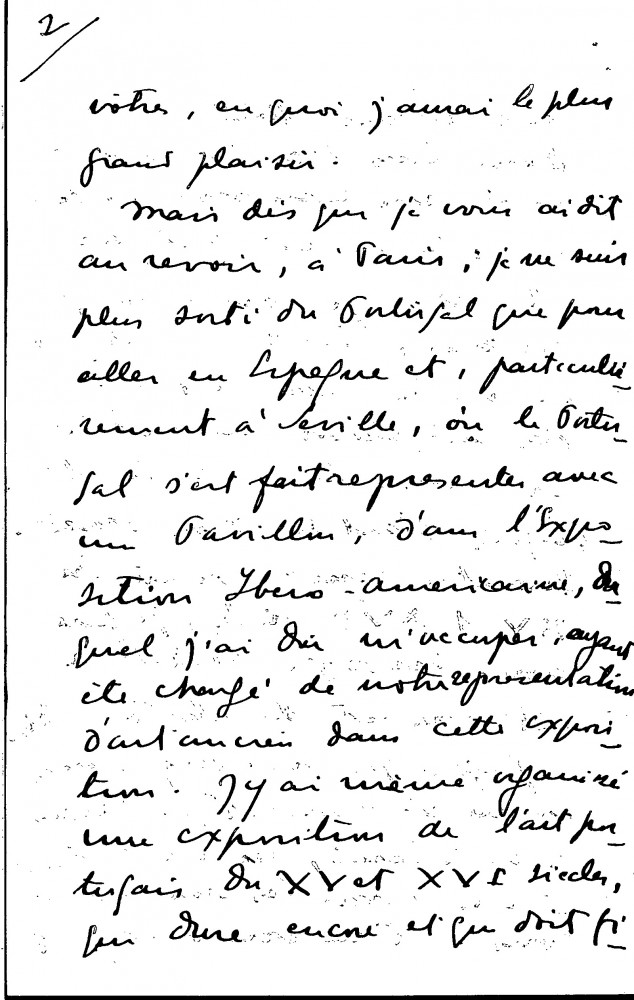 2/
vôtres, en quoi j'aurai le plus
grand plaisir.
Mais dès que je vous ai dit
au revoir, à Paris, je ne suis
plus sorti du Portugal que pour
aller en Espagne et, particuliè-
rement à Seville, où le Portu-
gal s'est fait representer avec
un Pavillon, dans l'Expo-
sition Ibero-americaine, du-
quel j'ai dû m'occuper, ayant
été chargé de notre representation
d'art ancien dans cette exposi-
tion. J'y ai même organisé
une exposition de l'art por-
tugais du XV et XVI siècles,
qui dure encore et qui doit fi-